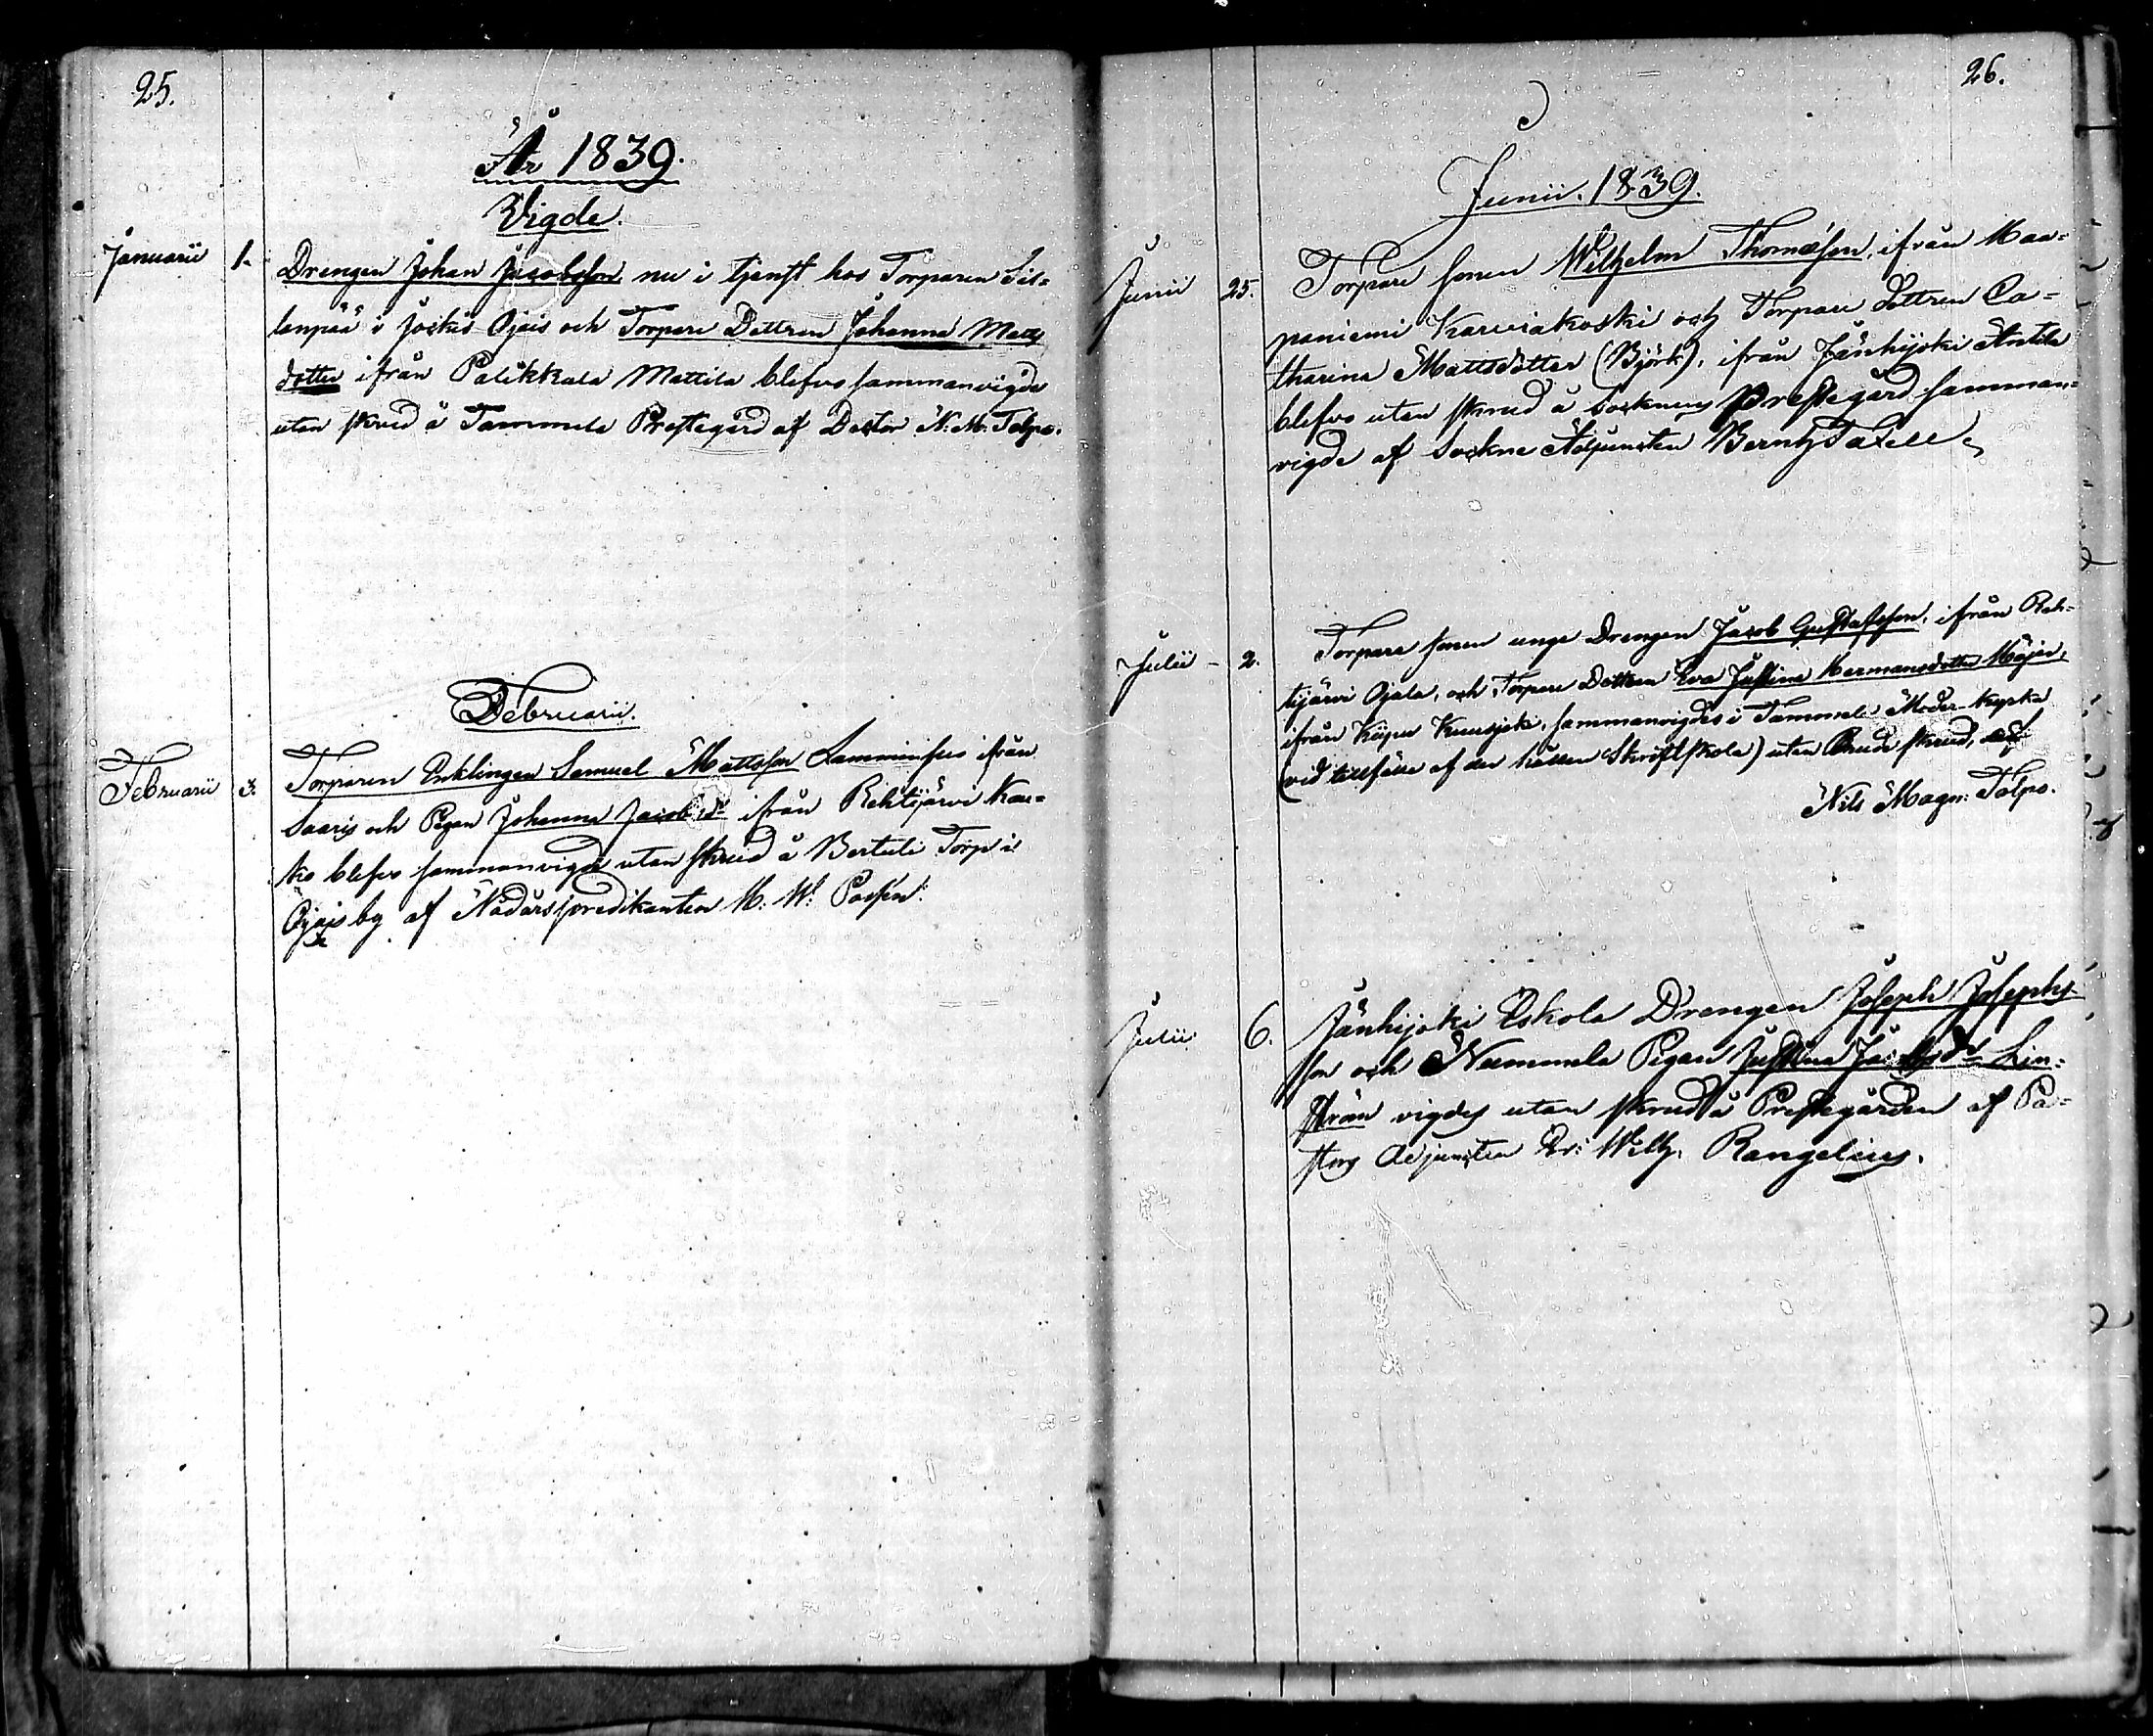 25.
År 1839.
Vigde.
Januarii 1. Drengen Johan Jacobsson nu i tjenst hos Torparen Sil=
lanpää i Jockis Ojais och Torpare Dottren Johanna Matts
dotter ifrån Palikkala Mattila blefvo sammanvigde
utan skrud å Tammela Prestegård af Doctor N. M. Tolpo.
Februarii.
Februarii 3. Torparen Enklingen Samuel Mattsson ifrån
Saaris och Pigan Johanna Jacobsdr ifrån Rehtijärvi Kau=
ko blefvo sammanvigde utan skrud å Bertuli Torp i
Ojais by af Nådårspredikanten M. W.
26.
Junii. 1839.
Junii 25. Torpare sonen Wilhelm Thomasson, ifrån Maa=
paniemi Karviakoski och Torpare Dottren Ca=
tharina Mattsdotter (Björk), ifrån Jänhijoki Anttila
blefvo utan skrud å Socknens Prestegård samman=
vigde af Sockne Adjuncten Bernh Taxell.
Julii - 2. Torpare sonen unge Drengen Jacob Gustafsson, ifrån Reh=
tijärvi Ojala, och Torpare Dottren Eva Justina Hermansdotter
ifrån Kuusjoki, sammanvigdes i Tammela Moder-kyrka
(vid tillfälle af der hållen Skriftskola) utan Brudeskrud, af
Nils Magn: Tolpo.
Julii 6. Jänhijoki Eskola Drengen Joseph Josephs=
son och Nummela Pigan Justina Jacobsdr Lin=
strön vigdes utan skrud å Prestegården af Pa=
stors Adjuncten Er: Wilh. Rangelius.